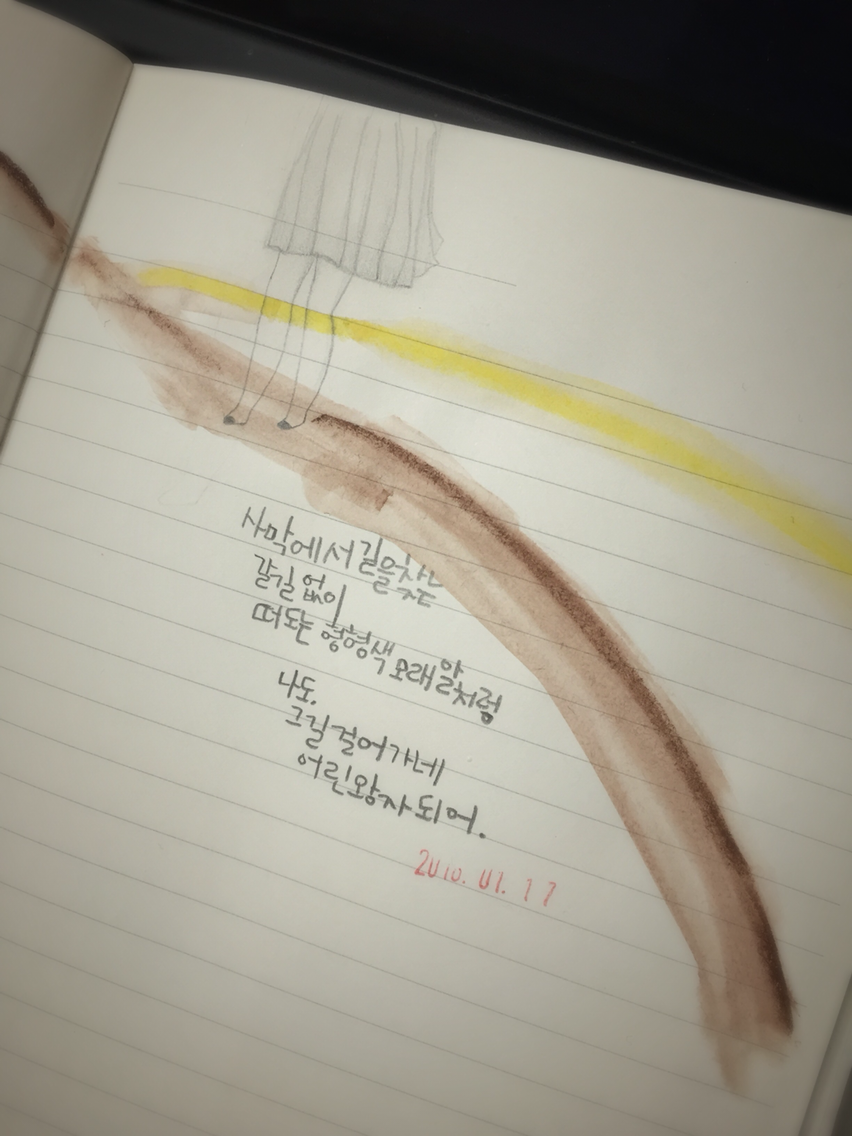 사막에서 길을 찾는
갈 길 없이
떠도는 형형색 모래알처럼
나도.
그 길 걸어가네
어린왕자 되어.
2010. 01. 17